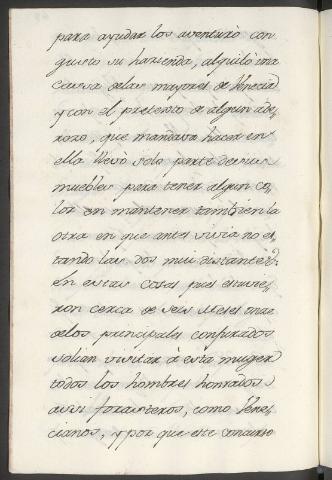 para ayudar los aventurò con
gusto su hazienda, alquilò una
cassa delas mayores de Venecia
y con el pretexto de algun ade,
rezo, que mandava hacer en
ella llevò solo parte de sus
muebles para tener algun co,
lor en mantener tambien la
otra en que antes vivia no es,
tando las dos mui distantes:
En estas casas pues estuvie,
ron cerca de seis Meses onze
delos principales conjurados
solian visitar à esta muger
todos los hombres honrados
assi forasteros, como Vene,
cianos, y por que este concurso